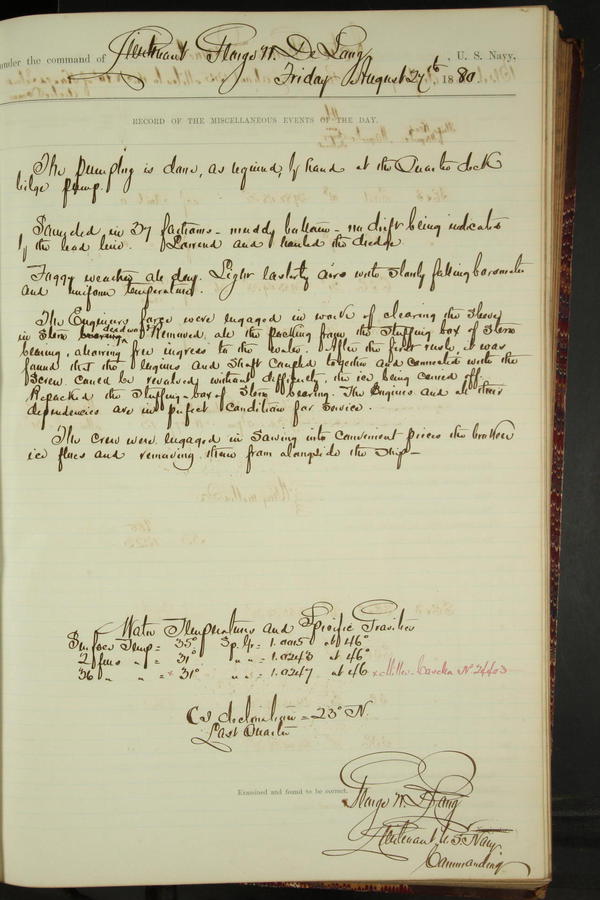 under the command of Lieutenant George W. De Long, U. S. Navy,
Friday August 27th 1880
RECORD OF THE MISCELLANEOUS EVENTS OF THE DAY.
The pumping is done, as required, by hand at the Quarter deck
bilge pump.
Sounded in 37 fathoms - muddy bottom - no drift being indicated
by the lead line. Lowered and hauled the dredge.
Foggy weather all day. Light Easterly airs with slowly falling barometer
and uniform temperature.
The Engineers force were engaged in work of clearing the sleeve
in Stern deadwood. Removed all the packing from the stuffing box of Stern
bearing, allowing free ingress to the water. After the first rush, it was
found that the Engines and Shaft Coupled together and connected with the
Screw could be revolved without difficulty, the ice being cleared off.
Repacked the Stuffing-box of Stern bearing. The Engines and all their
dependencies are in perfect Condition for Service.
The crew were engaged in Sawing into Convenient pieces the broken
ice floes and removing them from alongside the Ship -
Water Temperatures and Specific Gravities
Surface Temp = 35° Sp. Gr = 1.0005 at 46°
2 fms " = 31° " " = 1.0243 at 46°
36 " " = x 31° " " = 1.0247 at 46 x Miller Casella No. 24403
declination = 23° N.
Last Quarter
Examined and found to be correct.
George W. De Long
Lieutenant U.S. Navy
Commanding